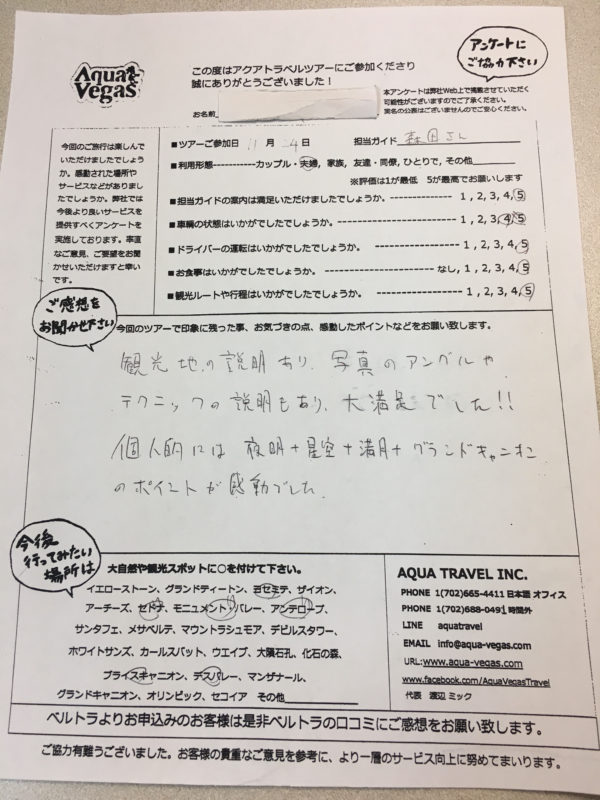 Aqua
Vegas
この度はアクアトラベルツアーにご参加くださり
誠にありがとうございました！
アンケートに
ご協力下さい
お名前
本アンケートは弊社Web上で掲載させていただく
可能性がございますのでご了承ください。
実名の公表はございませんのでご安心ください。
今回のご旅行は楽しんで
いただけましたでしょう
か。感動された場所や
サービスなどがありまし
たでしょうか。弊社では
今後より良いサービスを
提供すべくアンケートを
実施しております。率直
なご意見、ご要望をお聞
かせいただけますと幸い
です。
■ツアーご参加日 11 月 24 日 担当ガイド 森田さん
■利用形態-----------カップル・夫婦, 家族, 友達・同僚, ひとりで, その他
※評価は1が最低 5が最高でお願いします
■担当ガイドの案内は満足いただけましたでしょうか。 ---------- 1, 2, 3, 4, 5
■車輌の状態はいかがでしたでしょうか。 ---------- 1, 2, 3, 4, 5
■ドライバーの運転はいかがでしたでしょうか。 ---------- 1, 2, 3, 4, 5
■お食事はいかがでしたでしょうか。 ---------- なし, 1, 2, 3, 4, 5
■観光ルートや行程はいかがでしたでしょうか。 ---------- 1, 2, 3, 4, 5
ご感想を
お聞かせ下さい
今回のツアーで印象に残った事、お気づきの点、感動したポイントなどをお願い致します。
観光地の説明あり、写真のアングルや
テクニックの説明もあり、大満足でした!!
個人的には 夜明+星空+満月+グランドキャニオン
のポイントが感動でした
今後
行ってみたい
場所は
大自然や観光スポットに○を付けて下さい。
イエローストーン、グランドティートン、ヨセミテ、ザイオン、
アーチーズ、セドナ、モニュメントバレー、アンテロープ、
サンタフェ、メサベルテ、マウントラシュモア、デビルスタワー、
ホワイトサンズ、カールスバット、ウエイブ、大隕石孔、化石の森、
ブライスキャニオン、デスバレー、マンザナール、
グランドキャニオン、オリンピック、セコイア その他
AQUA TRAVEL INC.
PHONE 1(702)665-4411 日本語 オフィス
PHONE 1(702)688-0491 時間外
LINE aquatravel
EMAIL info@aqua-vegas.com
URL:www.aqua-vegas.com
www.facebook.com/AquaVegasTravel
代表 渡辺 ミック
ベルトラよりお申込みのお客様は是非ベルトラの口コミにご感想をお願い致します。
ご協力有難うございました。お客様の貴重なご意見を参考に、より一層のサービス向上に努めてまいります。